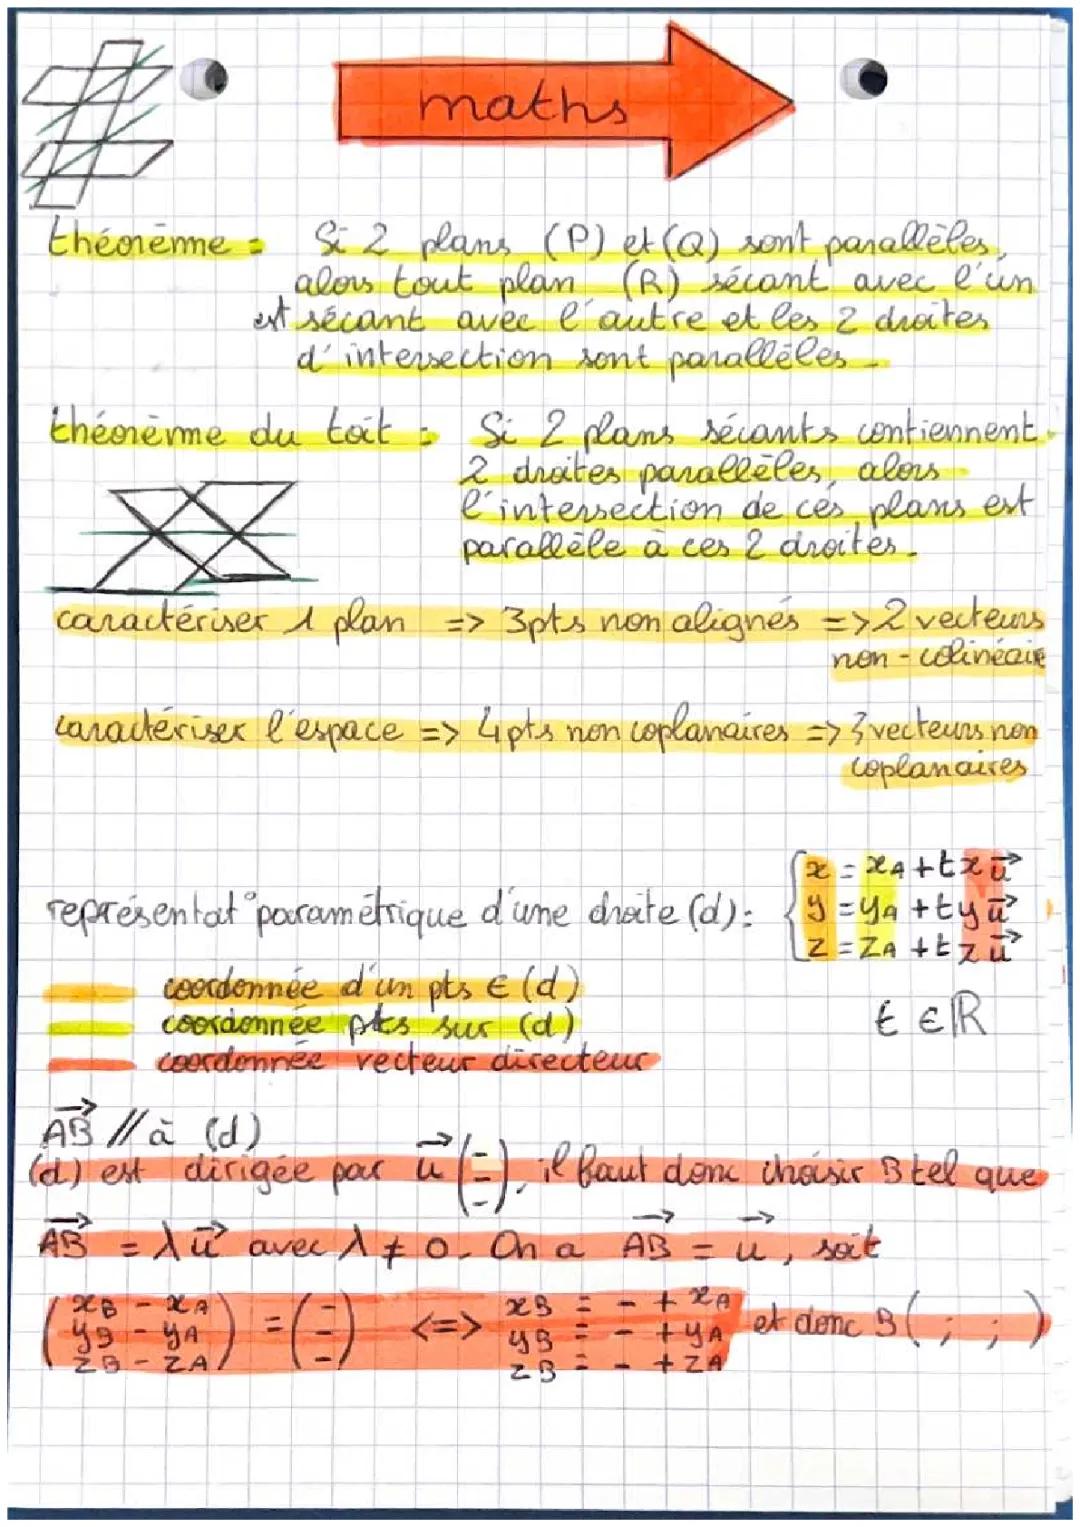 maths
théorème = Si 2 plans (P) et (Q) sont parallèles,
alors tout plan (R) sécant avec l'un
est sécant avec l'autre et les 2 droites
d'intersection sont parallèles.
théorème du toit : Si 2 plans sécants contiennent
2 droites parallèles, alors
l'intersection de ces plans est
parallèle à ces 2 droites.
caractériser 1 plan => 3pts non alignés => 2 vecteurs
non-colinéaire
caractériser l'espace => 4pts non coplanaires => 3 vecteurs non
coplanaires
représentat° paramétrique d'une droite (d): { x = xA + t x u⃗
y = yA + t y u⃗
z = zA + t z u⃗
coordonnée d'un pts ∈ (d)
coordonnée pts sur (d) t ∈ ℝ
coordonnée vecteur directeur
A͞B⃗ // à (d)
(d) est dirigée par u⃗ (- - -), il faut donc choisir B tel que
AB⃗ = λu⃗ avec λ ≠ 0. On a AB⃗ = u⃗, soit
(xB - xA) = (-) <=> xB = - + xA
(yB - yA) = (-) yB = - + yA et donc B ( ; ; )
(zB - zA) = (-) zB = - + zA